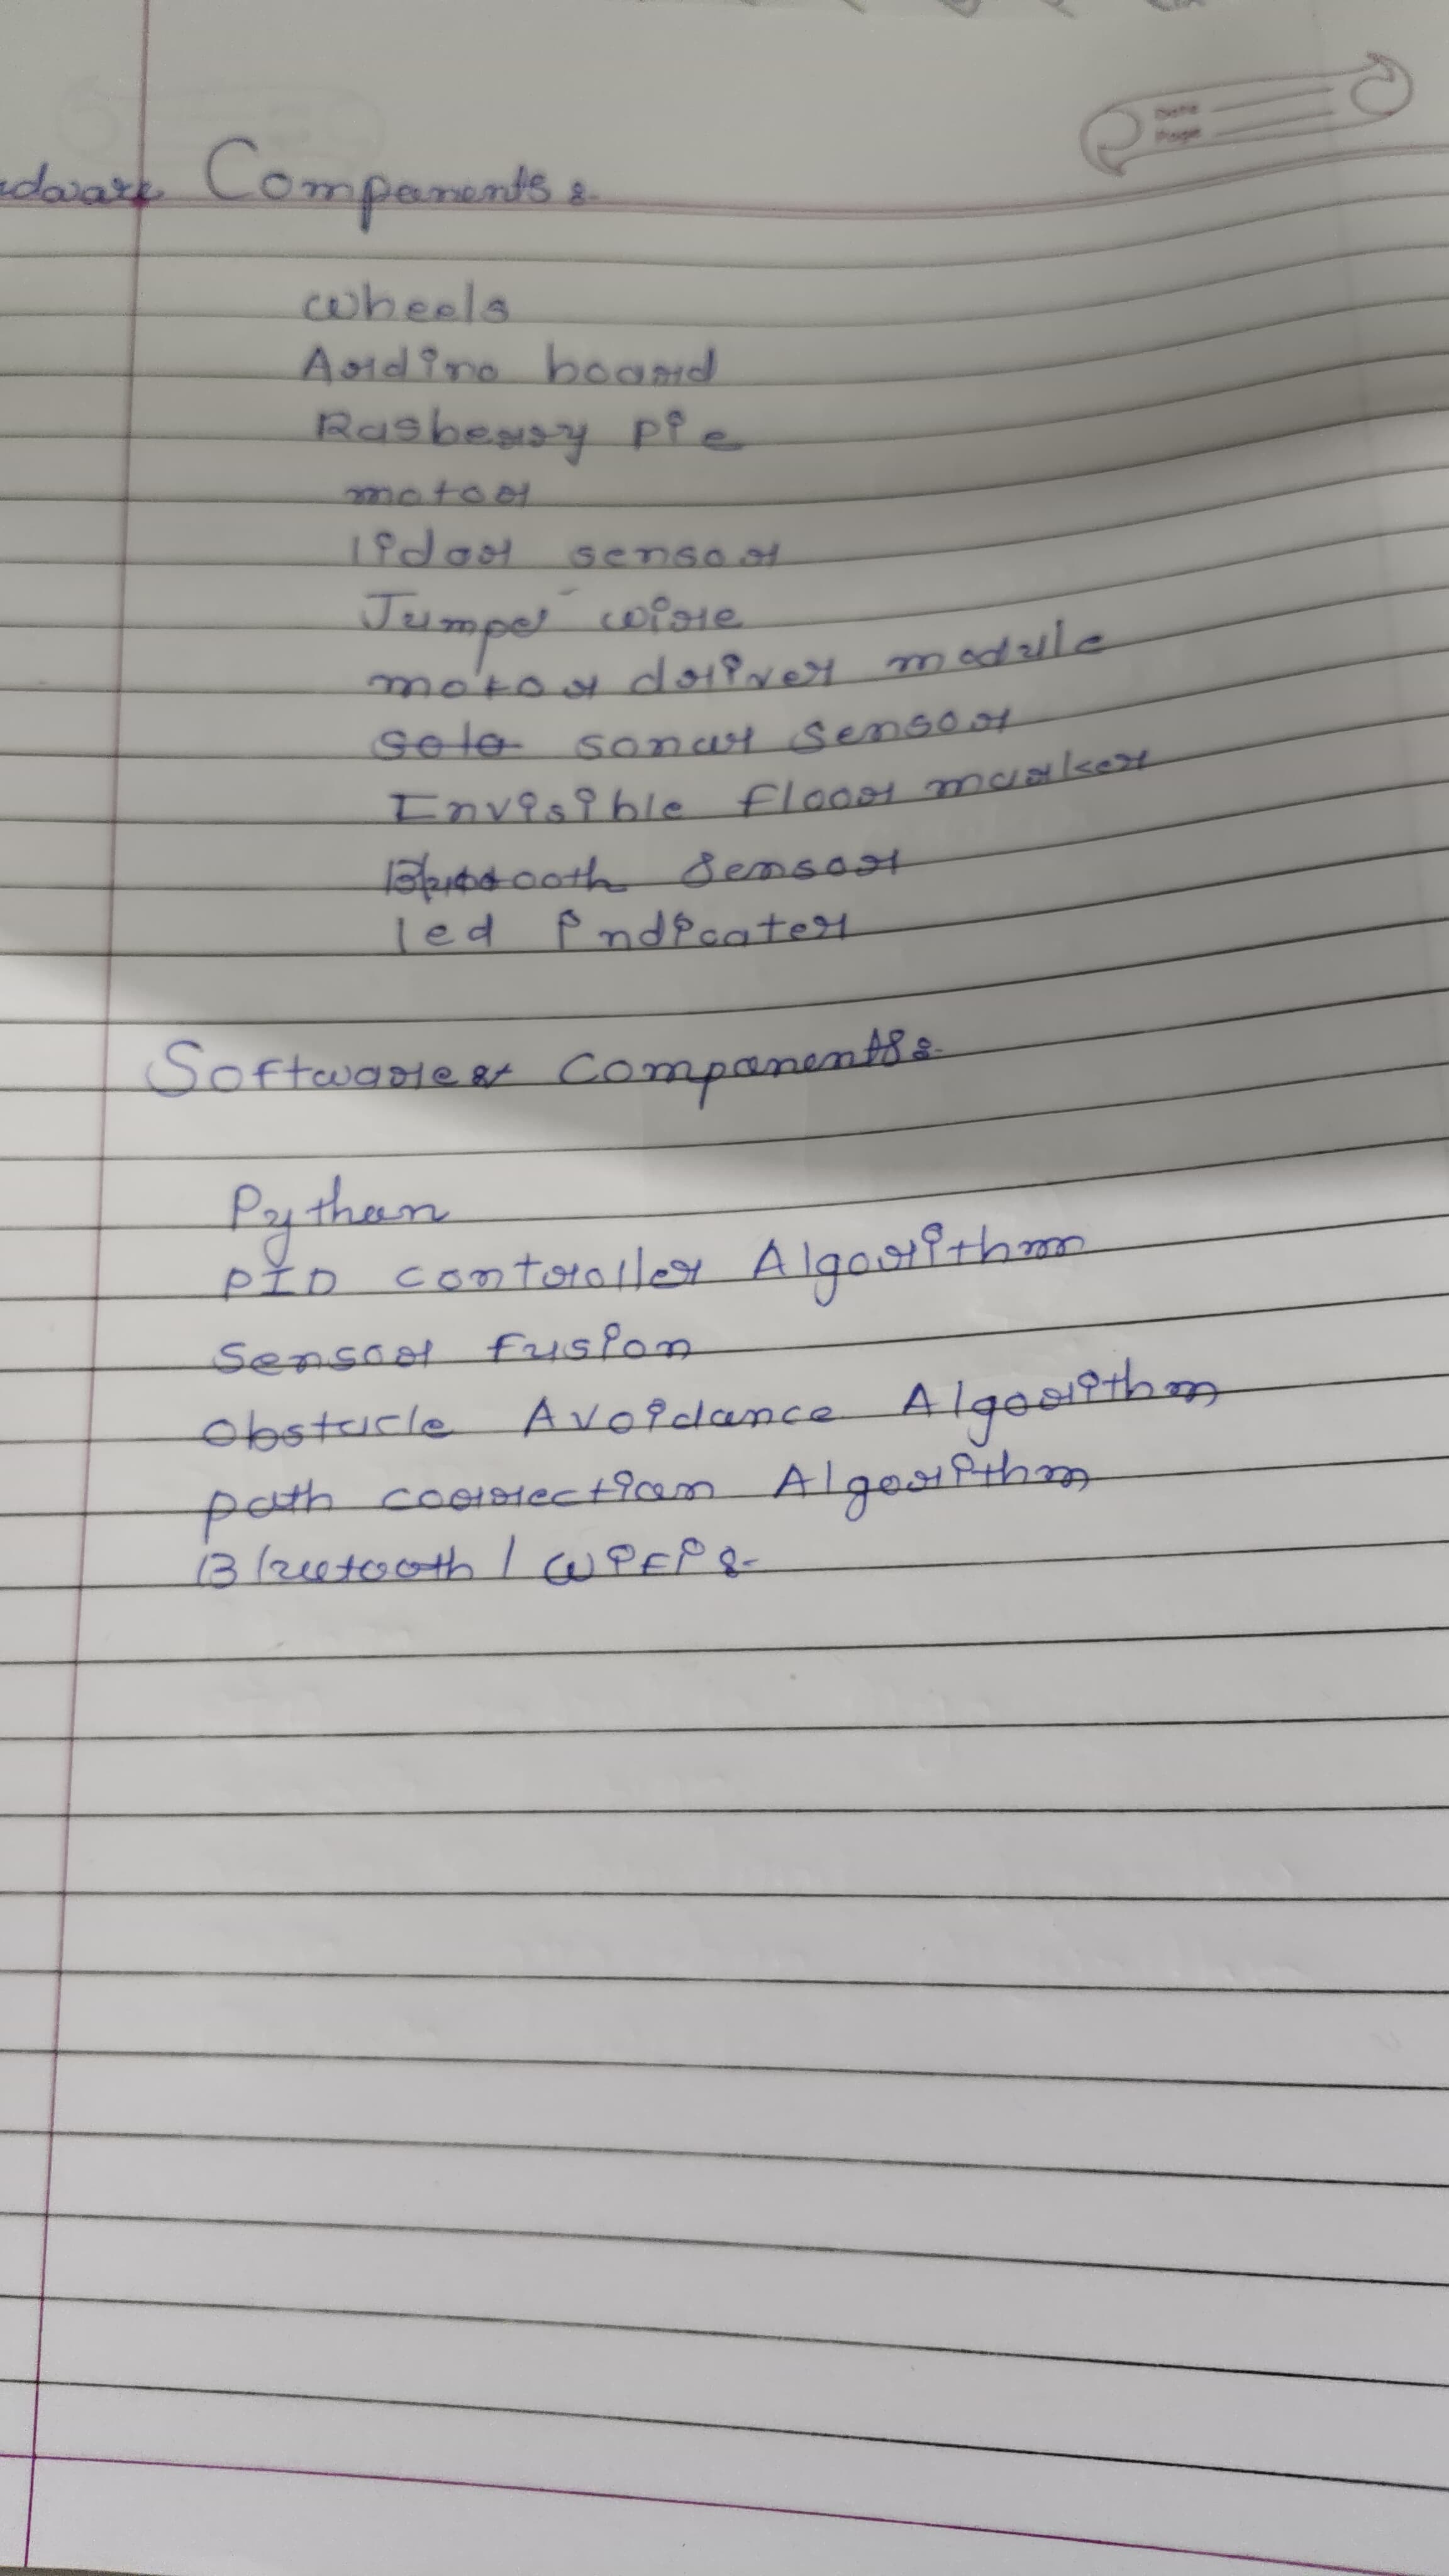 Date
Page
dware Components :-
wheels
Ardino board
Rasberry pie
motor
lidar sensor
Jumper wire
motor driver module
solo sonar sensor
Invisible floor marker
Bluetooth sensor
led indicater
Software Components :-
Python
PID controller Algorithm
sensor fusion
obstacle Avoidance Algorithm
path correction Algorithm
Bluetooth / WIFI :-